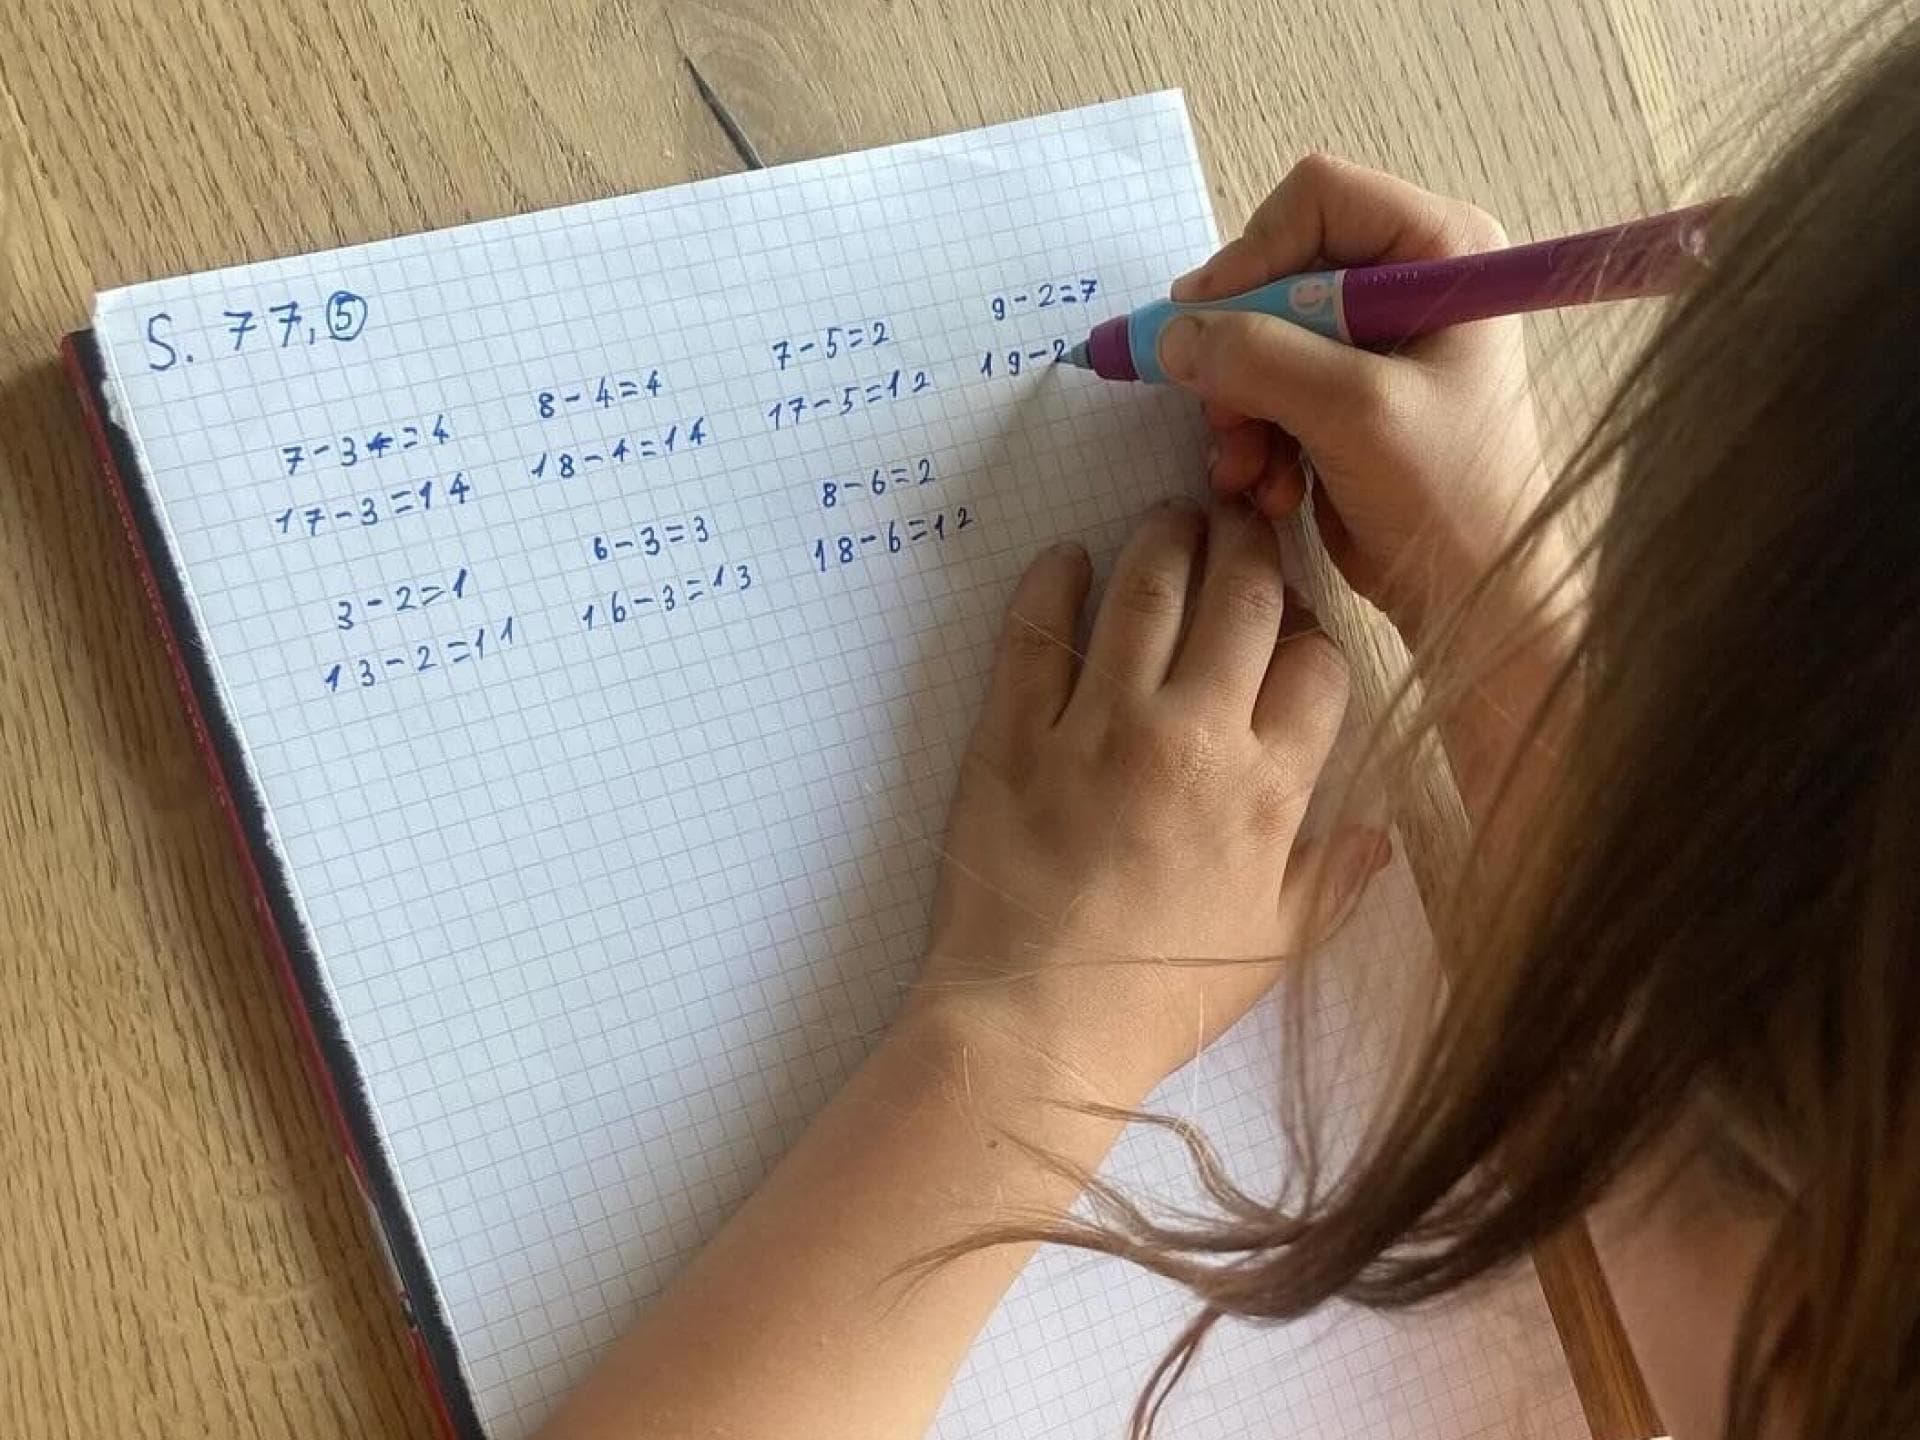 S. 77, 5
7-3=4 8-4=4 7-5=2 9-2=7
17-3=14 18-4=14 17-5=12 19-2
3-2=1 6-3=3 8-6=2
13-2=11 16-3=13 18-6=12